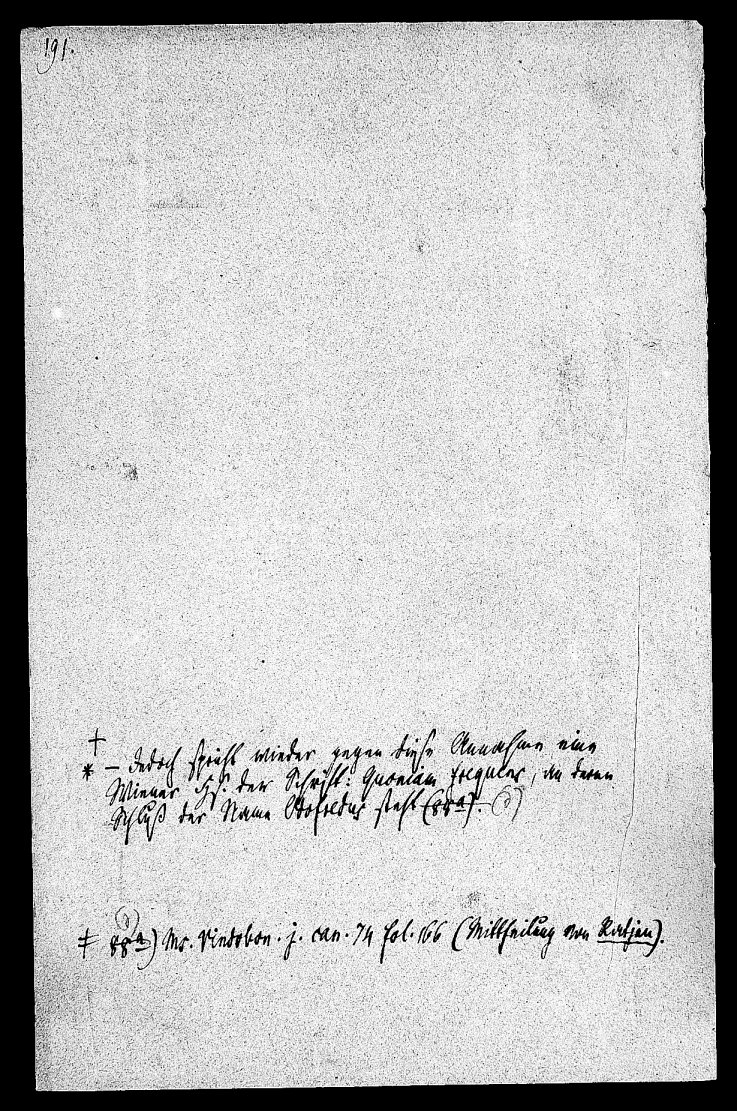 191.
†
* – Jedoch spricht wieder gegen diese Annahme eine
Wiener Hs. der Schrift: Quoniam frequenter, an deren
Schluß der Name steht (88a).
‡ 88a) Ms. Vindobon. j. can. 74 fol. 166 (Mittheilung von Ratjen).